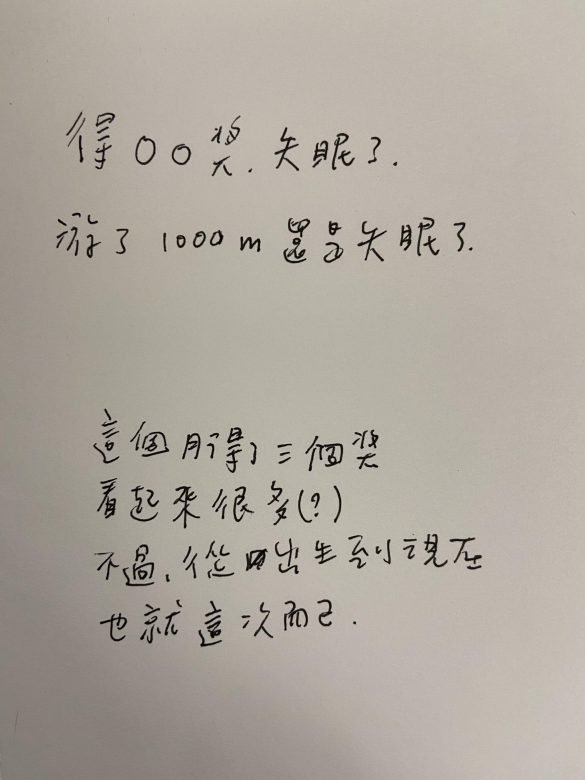 得○○獎. 失眠了.
游了1000m 還是失眠了.
這個月得了三個獎
看起來很多(?)
不過, 從出生到現在
也就這次而已.